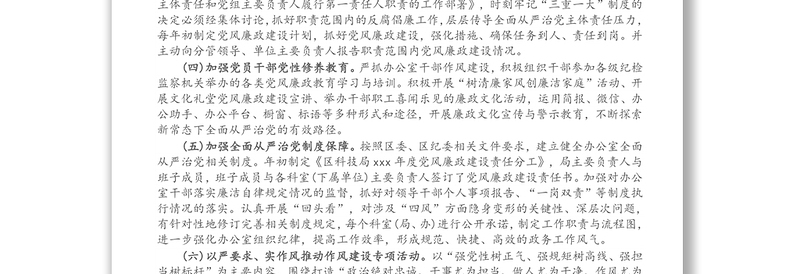 主体责任和党组主要负责人履行第一责任人职责的工作部署》，时刻牢记“三重一大”制度的
决定必须经集体讨论，抓好职责范围内的反腐倡廉工作，层层传导全面从严治党主体责任压力，
每年初制定党风廉政建设计划，抓好党风廉政建设，强化措施、确保任务到人、责任到岗。并
主动向分管领导、单位主要负责人报告职责范围内党风廉政建设情况。
(四)加强党员干部党性修养教育。严抓办公室干部作风建设，积极组织干部参加各级纪检
监察机关举办的各类党风廉政教育学习与培训。积极开展“树清廉家风创廉洁家庭”活动、开
展文化礼堂党风廉政建设宣讲、举办干部职工喜闻乐见的廉政文化活动，运用简报、微信、办
公助手、办公平台、橱窗、标语等多种形式和途径，开展廉政文化宣传与警示教育，不断探索
新常态下全面从严治党的有效路径。
(五)加强全面从严治党制度保障。按照区委、区纪委相关文件要求，建立健全办公室全面
从严治党相关制度。年初制定《区科技局xxx年度党风廉政建设责任分工》，局主要负责人与
班子成员，班子成员与各科室(下属单位)主要负责人签订了党风廉政建设责任书。加强对办公
室干部落实廉洁自律规定情况的监督，抓好对领导干部个人事项报告、“一岗双责”等制度执
行情况的落实。认真开展“回头看”，对涉及“四风”方面隐身变形的关键性、深层次问题，
有针对性地修订完善相关制度规定，每个科室(局、办)进行公开承诺，制定工作职责与流程图，
进一步强化办公室组织纪律，提高工作效率，形成规范、快捷、高效的政务工作风气。
(六)以严要求、实作风推动作风建设专项活动。以“强党性树正气、强规矩树高线、强担
当树标杆”为主要内容，围绕打造“政治绝对忠诚、干事尤为担当、做人尤为干净、作风尤为